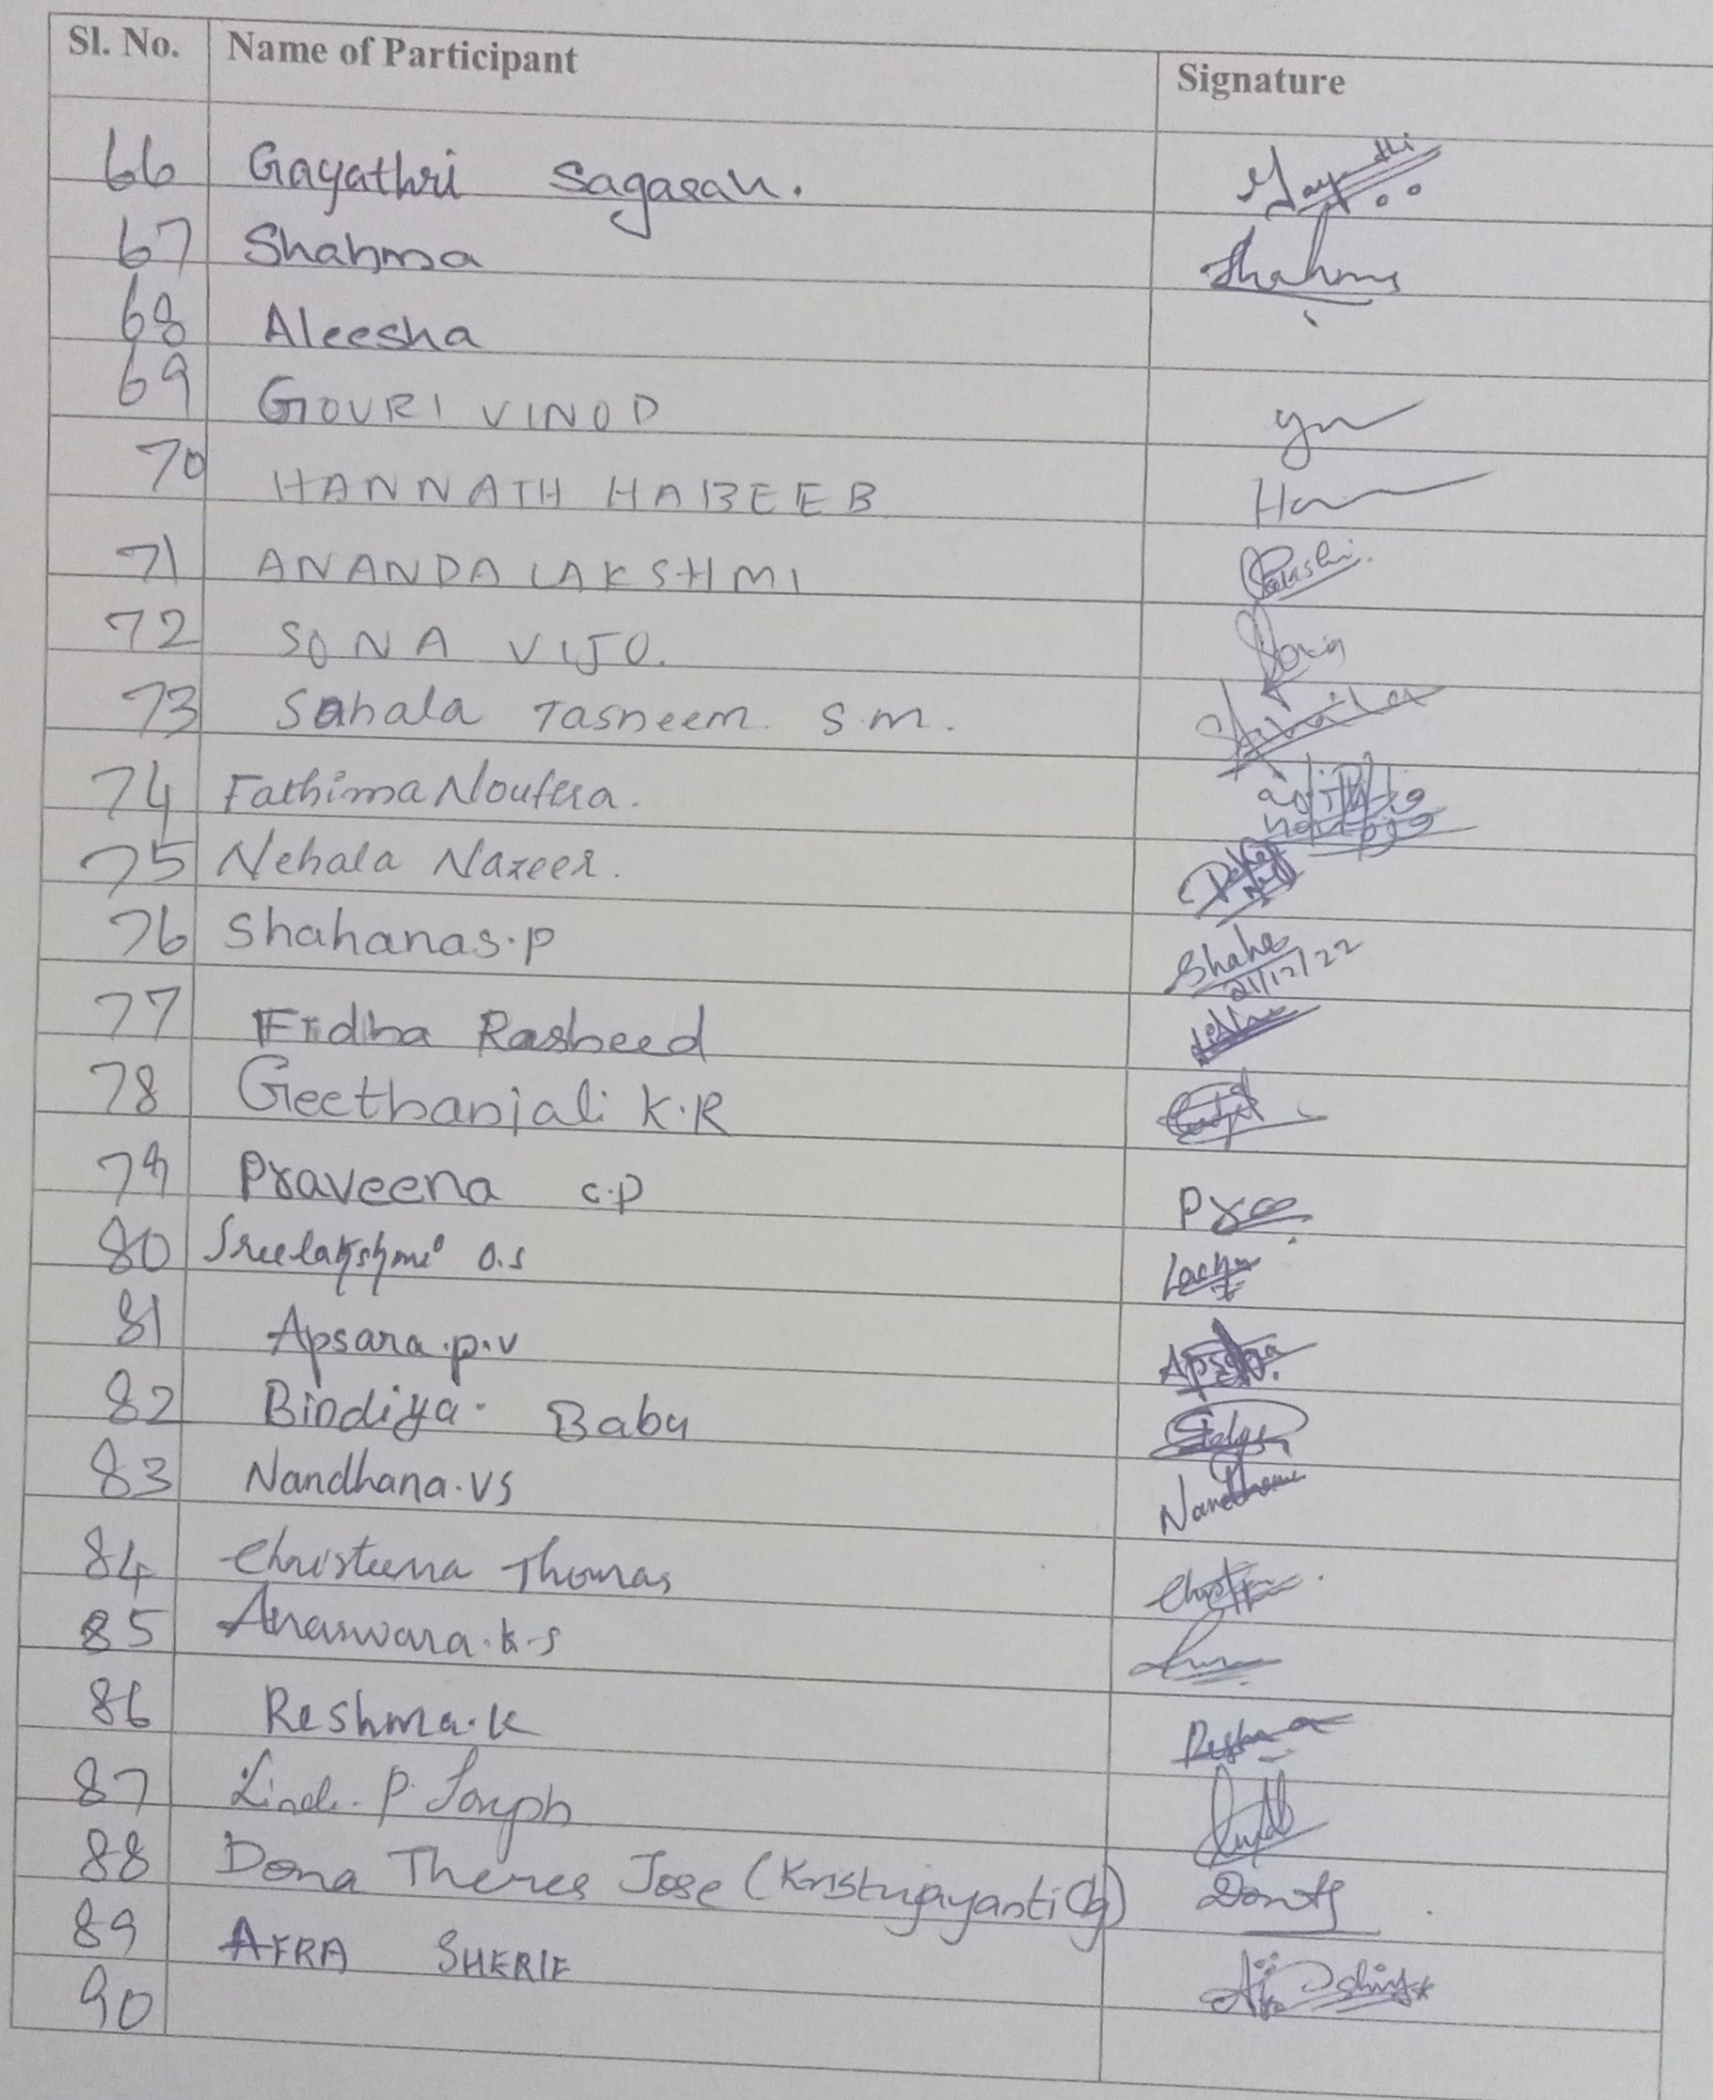 Sl. No. Name of Participant Signature
66 Gayathri Sagaran.
67 Shahma Shahma
68 Aleesha
69 GOURI VINOD
70 HANNATH HABEEB
71 ANANDALAKSHMI
72 SONA VIJO. Sona
73 Sahala Tasneem. S.M.
74 Fathima Noufera.
75 Nehala Nazeer.
76 Shahanas.P Shaha
21/12/22
77 Fidha Rasheed
78 Geethanjali K.R
79 Praveena C.P
80 Sreelakshmi O.S
81 Apsara.P.V Apsara
82 Bindiya. Babu
83 Nandhana.VS Nandhana
84 Christeena Thomas
85 Anaswara.K.S
86 Reshma.K Reshma
87 P. Joseph
88 Dona Theres Jose (Kristujayanti Clg)
89 AFRA SHERIF
90